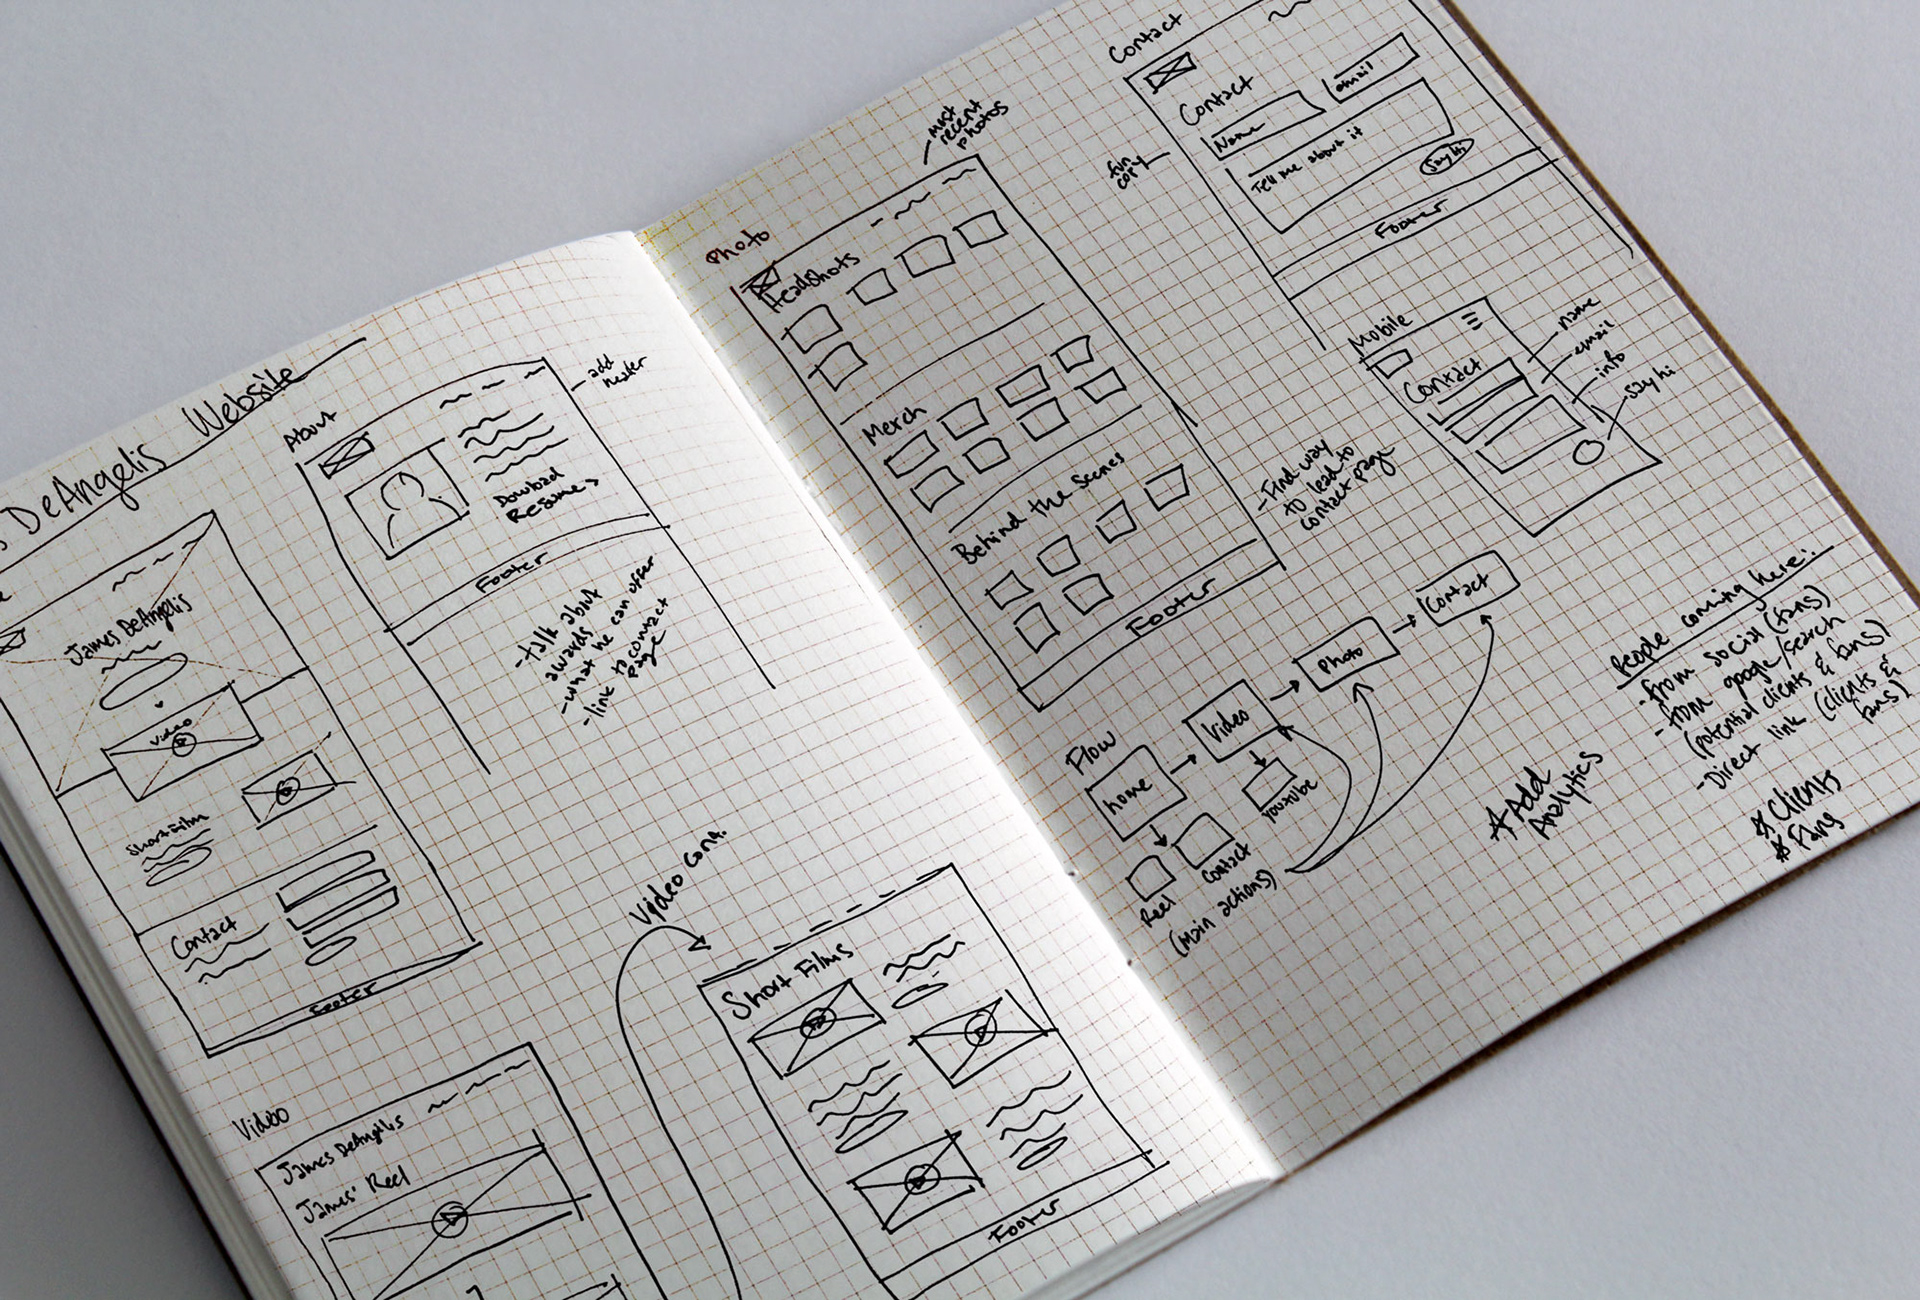 DeAngelis Website
James DeAngelis
Video
Short Film
Contact
Footer
About
add
header
Download
Resume >
Footer
- talk about
awards
- what he can offer
- link to contact
page
Video
James DeAngelis
James' Reel
Video Cont.
Short Films
Footer
Photo
most
recent
photos
Headshots
Merch
Behind the Scenes
Footer
- Find way
to lead to
contact page
Contact
Contact
Name
email
Tell me about it
Say hi
fun
copy
Footer
Mobile
Contact
name
email
info
say hi
Flow
home
Video
Photo
Contact
Reel
Contact
youtube
(main actions)
* Add
Analytics
People coming here:
- from social (fans)
- from google/search
(potential clients & fans)
- Direct link (clients &
fans)
* Clients
* Fans